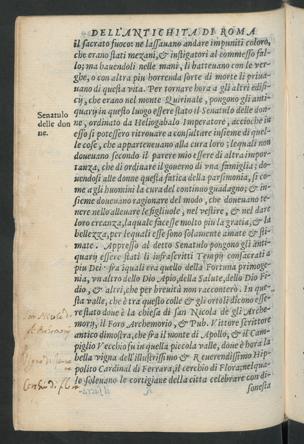 DELL'ANTICHITA DI ROMA
il sacrato fuoco: ne lassauano andare impuniti coloro,
che erano stati mezani, & instigatori al commesso fal-
lo; ma hauendoli nelle mani, li batteuano con le ver-
ghe, o con altra piu horrenda sorte di morte li priua-
uano di questa vita. Per tornare hora a gli altri edifi-
cij, che erano nel monte Quirinale, pongono gli anti-
quarij in questo luogo essere stato il Senatulo delle don
Senatulo
delle don
ne.
ne, ordinato da Heliogabalo Imperatore, accioche in
esso si potessero ritrouare a consultare insieme di quel-
le cose, che apparteneuano alla cura loro; lequali non
doueuano secondo il parere mio essere di altra impor-
tanza, che di ordinare il gouerno di vna famiglia;
uendosi alle donne questa fatica della parsimonia, si co-
me a gli huomini la cura del continuo guadagno; & in-
sieme doueuano ragionare del modo, che doueuano te-
nere nello alleuare le figliuole, nel vestire, & nel dare
loro creanza, laquale facesse molto piu la gratia, & la
bellezza, per lequali esse sono solamente amate & sti-
mate. Appresso al detto Senatulo pongono gli anti-
quarij essere stati li infrascritti Tempij consacrati a
piu Dei: fra iquali era quello della Fortuna primoge-
nia, vn altro dello Dio Apio, della Salute, dello Dio Fi-
dio, & altri, che per breuità non racconterò. In que-
sta valle, che è tra questo colle & gli ortoli dicono esse-
re stato doue è la chiesa di san Nicola de gli Arche-
morij, il Foro Archemorio, & Pub. Vittore scrittore
antico dimostra, che fra il monte di Apollo, & il Cam-
piglio Vecchio fu in quella piccola valle, doue è hora la
bella vigna dell'Illustrissimo & Reuerendissimo Hip-
polito Cardinal di Ferrara, il cerchio di Flora; nel qua-
lo soleuano le cortigiane della citta celebrare con di-
sonesta